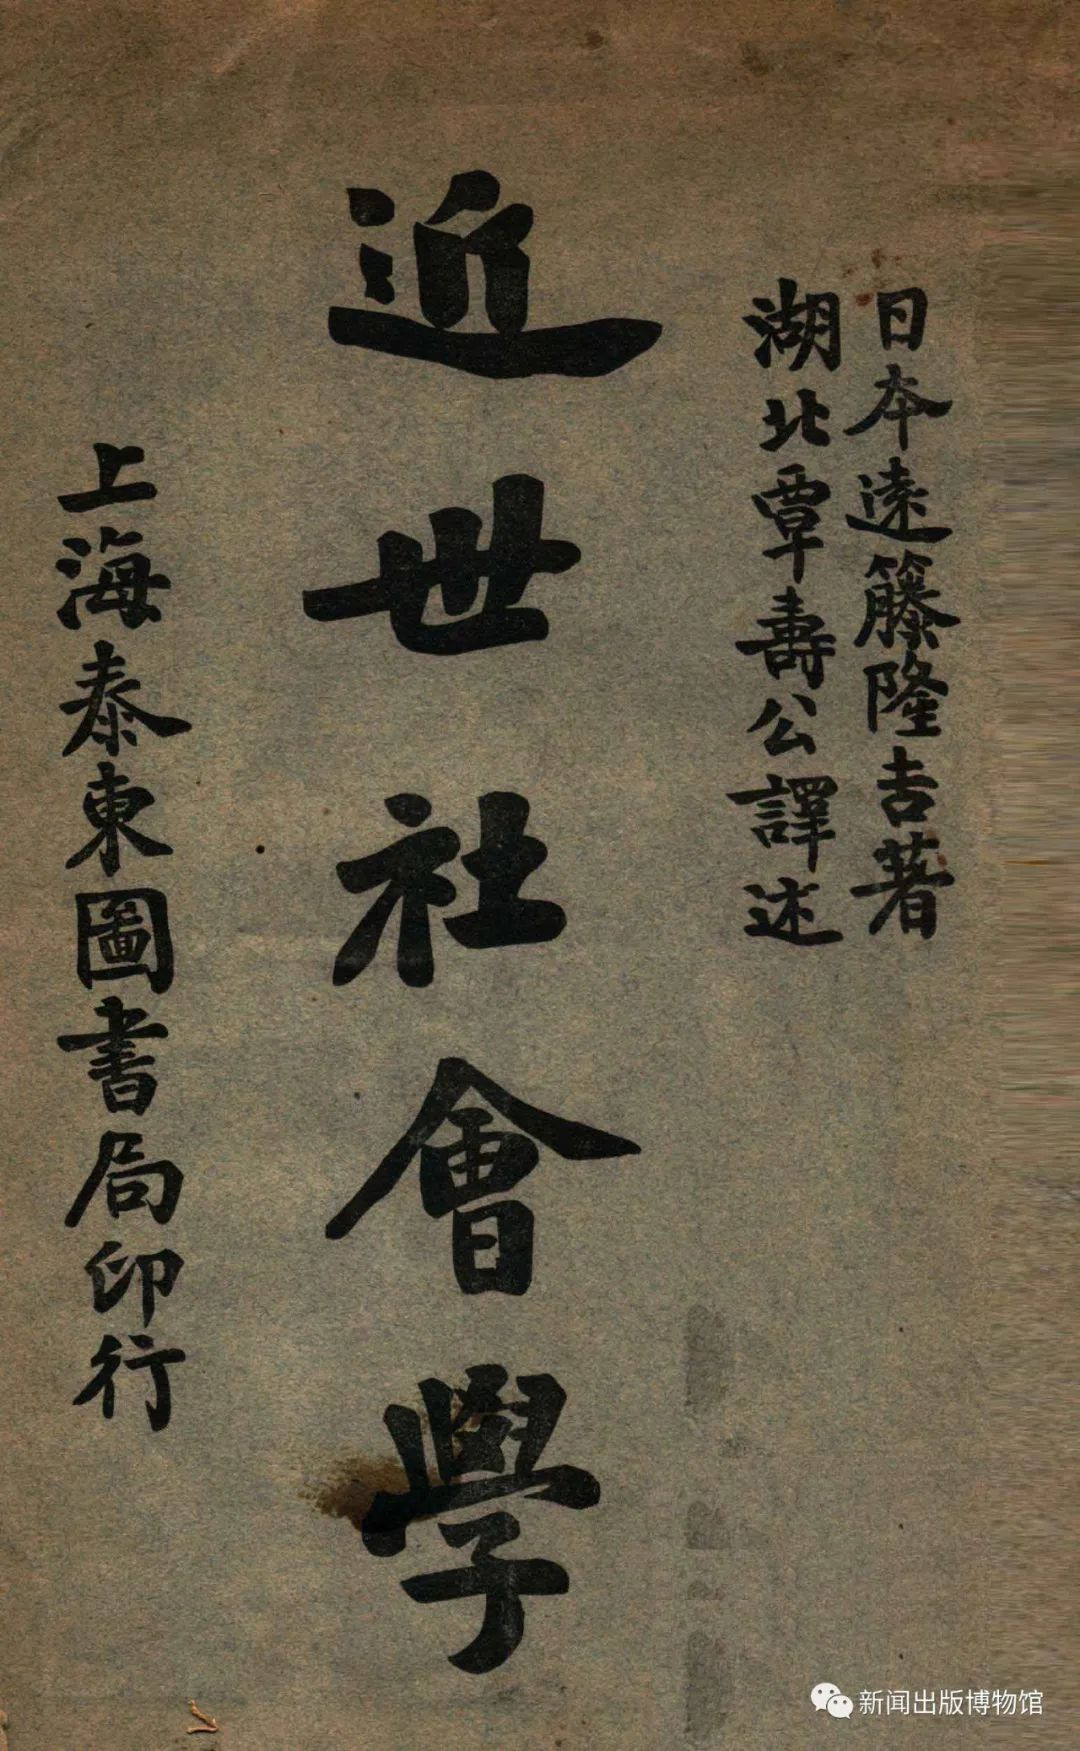 日本遠籐隆吉著
湖北覃壽公譯述
近世社會學
上海泰東圖書局印行
新闻出版博物馆